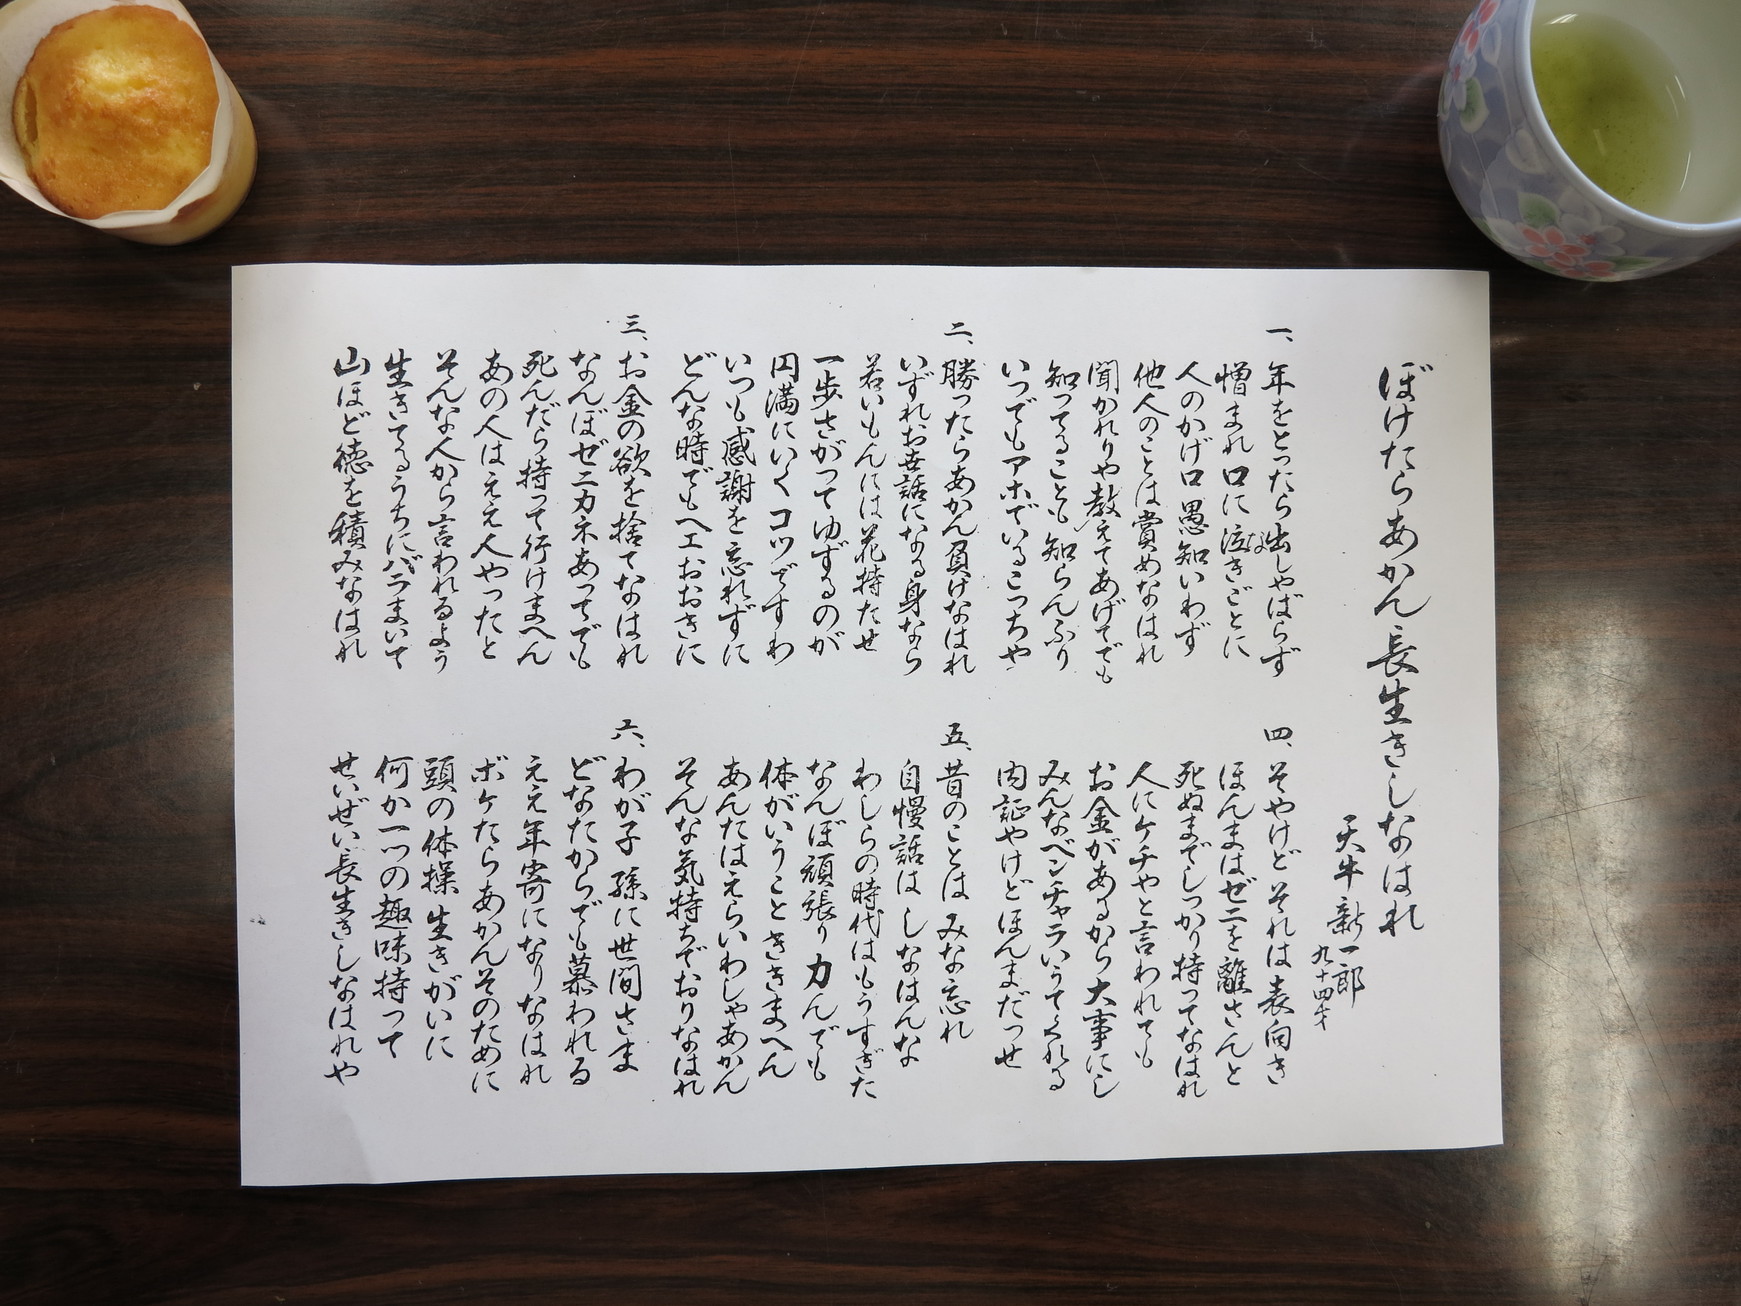 ぼけたらあかん長生きしなはれ
天牛新一郎
九十四才
一、年をとったら出しゃばらず
憎まれ口に泣きごとに
人のかげ口愚知いわず
他人のことは賞めなはれ
聞かれりゃ教えてあげてでも
知ってることも知らんふり
いつでもアホでいるこっちゃ
二、勝ったらあかん負けなはれ
いずれお世話になる身なら
若いもんには花持たせ
一歩さがってゆずるのが
円満にいくコツですわ
いつも感謝を忘れずに
どんな時でもヘエおおきに
三、お金の欲を捨てなはれ
なんぼゼニカネあってでも
死んだら持って行けまへん
あの人はええ人やったと
そんな人から言われるよう
生きてるうちにバラまいて
山ほど徳を積みなはれ
四、そやけどそれは表向き
ほんまはゼニを離さんと
死ぬまでしっかり持ってなはれ
人にケチやと言われても
お金があるから大事にし
みんなベンチャラいうてくれる
内証やけどほんまだっせ
五、昔のことはみな忘れ
自慢話はしなはんな
わしらの時代はもうすぎた
なんぼ頑張り力んでも
体がいうことききまへん
あんたはえらいわしゃあかん
そんな気持ちでおりなはれ
六、わが子孫に世間さま
どなたからでも慕われる
ええ年寄になりなはれ
ボケたらあかんそのために
頭の体操生きがいに
何か一つの趣味持って
せいぜい長生きしなはれや